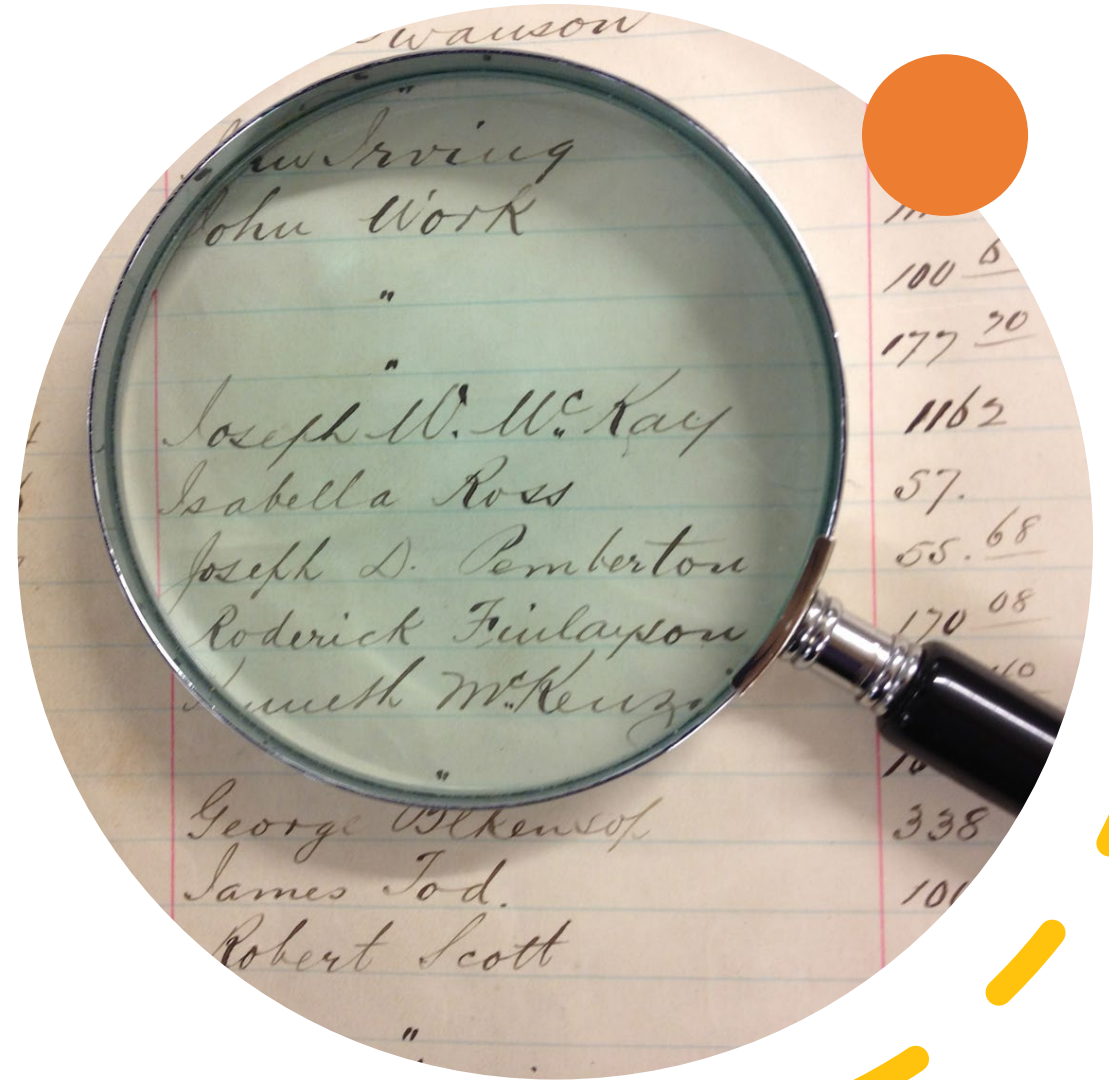 Swanson
"
Irving
John Work
" 100
" 177 70
Joseph W. McKay 1162
Isabella Ross 57.
Joseph D. Pemberton 55.68
Roderick Finlayson 170 08
Kenneth McKenzi
"
George Blkensop 338
James Tod. 100
Robert Scott
"